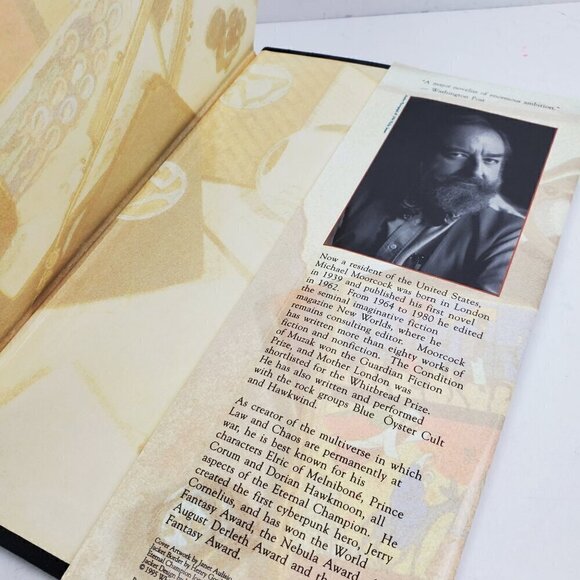 "A major novelist of enormous ambition."
— Washington Post
Now a resident of the United States,
Michael Moorcock was born in London
in 1939 and published his first novel
in 1962. From 1964 to 1980 he edited
the seminal imaginative fiction
magazine New Worlds, where he
remains consulting editor. Moorcock
has written more than eighty works of
fiction and nonfiction. The Condition
of Muzak won the Guardian Fiction
Prize, and Mother London was
shortlisted for the Whitbread Prize.
He has also written and performed
with the rock groups Blue Oyster Cult
and Hawkwind.
As creator of the multiverse in which
Law and Chaos are permanently at
war, he is best known for his
characters Elric of Melniboné, Prince
Corum and Dorian Hawkmoon, all
aspects of the Eternal Champion. He
created the first cyberpunk hero, Jerry
Cornelius, and has won the World
Fantasy Award, the Nebula Award
August Derleth Award and the
Fantasy Award.
Cover Artwork by Janet
Jacket Border by Henry
Eternal Champion
Jacket Design by
© 1995